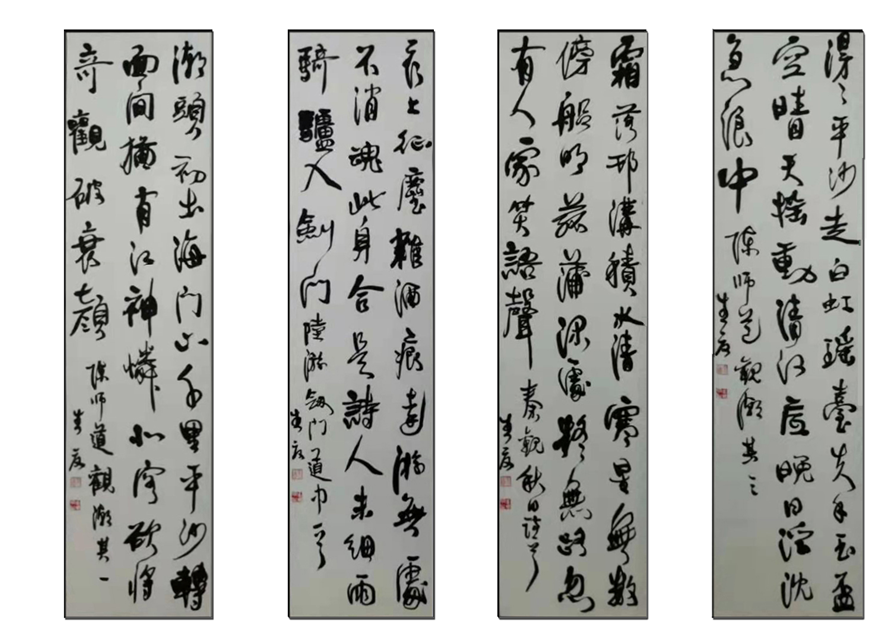 漫々平沙走白虹瑶臺失手玉盃
空晴天摇動清江底晚日浮沈
急浪中
陳師道觀潮其二
霜落邗溝積水清寒星無数
傍船明菰蒲深處疑無路忽
有人家笑語聲
秦觀秋日詩
衣上征塵雜酒痕遠游無處
不消魂此身合是詩人未細雨
騎驢入劍門
陸游劔門道中
潮頭初出海門山千里平沙轉
面間猶有江神憐北客欲將
奇觀破衰顏
陳師道觀潮其一